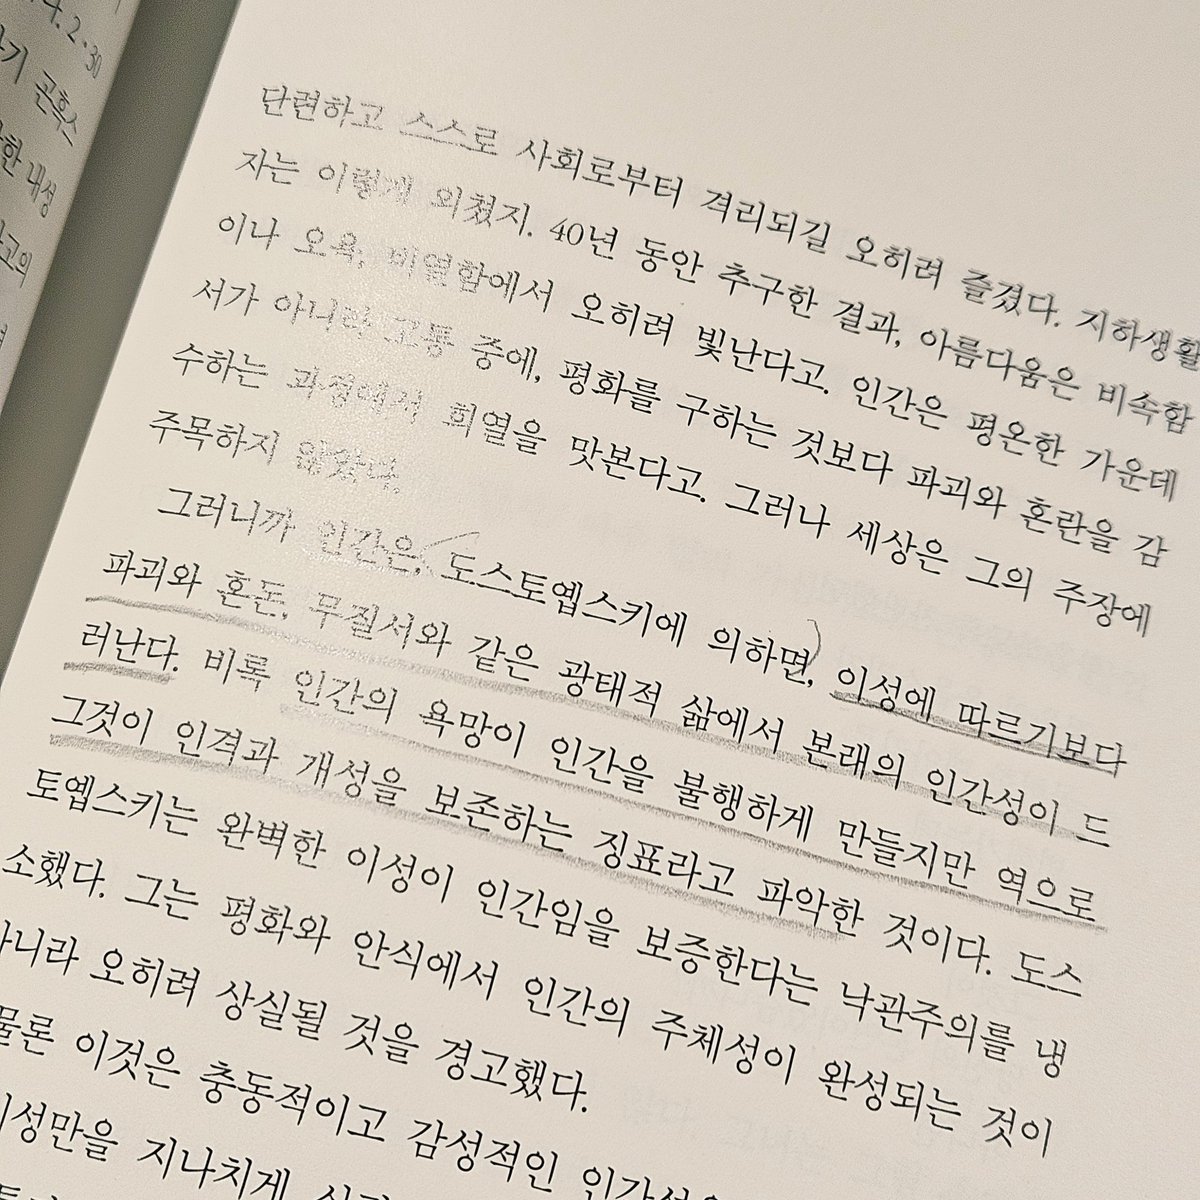 단련하고 스스로 사회로부터 격리되길 오히려 즐겼다. 지하생활
자는 이렇게 외쳤지. 40년 동안 추구한 결과, 아름다움은 비속함
이나 오욕, 비열함에서 오히려 빛난다고. 인간은 평온한 가운데
서가 아니라 고통 중에, 평화를 구하는 것보다 파괴와 혼란을 감
수하는 과정에서 희열을 맛본다고. 그러나 세상은 그의 주장에
주목하지 않았다.
그러니까 인간은, 도스토옙스키에 의하면, 이성에 따르기보다
파괴와 혼돈, 무질서와 같은 광태적 삶에서 본래의 인간성이 드
러난다. 비록 인간의 욕망이 인간을 불행하게 만들지만 역으로
그것이 인격과 개성을 보존하는 징표라고 파악한 것이다. 도스
토옙스키는 완벽한 이성이 인간임을 보증한다는 낙관주의를 냉
소했다. 그는 평화와 안식에서 인간의 주체성이 완성되는 것이
아니라 오히려 상실될 것을 경고했다.
물론 이것은 충동적이고 감성적인
이성만을 지나치게
2·30
곤혹스
내성